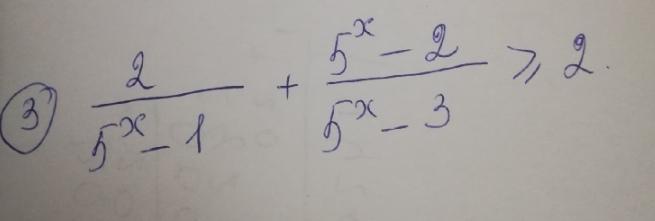 3) \frac{2}{5^x - 1} + \frac{5^x - 2}{5^x - 3} ⩾ 2.